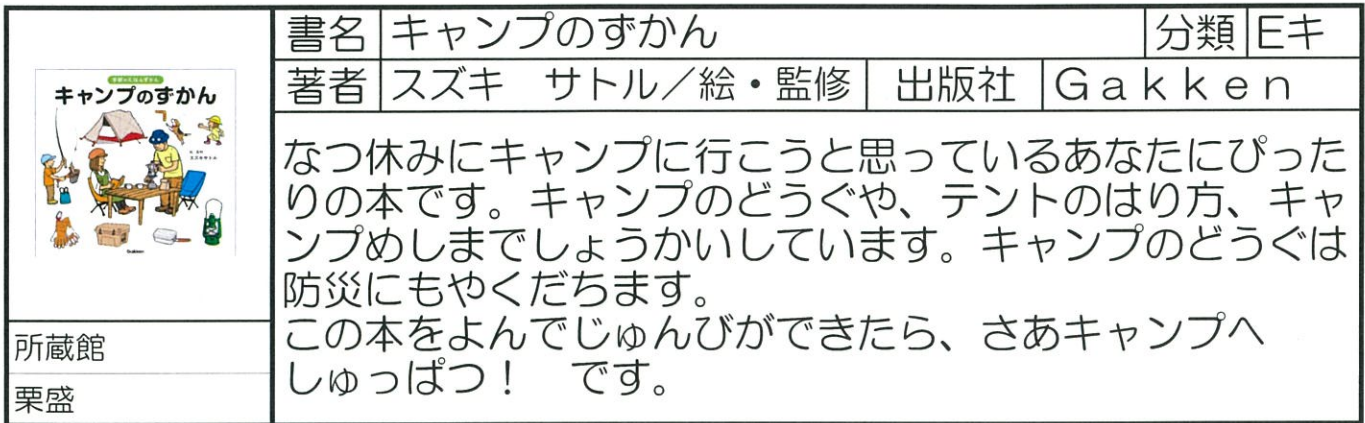 学研のえほんずかん
キャンプのずかん
絵・監修
スズキサトル
Gakken
所蔵館
栗盛
書名 キャンプのずかん 分類 Eキ
著者 スズキ　サトル／絵・監修 出版社 Ｇａｋｋｅｎ
なつ休みにキャンプに行こうと思っているあなたにぴった
りの本です。キャンプのどうぐや、テントのはり方、キャ
ンプめしまでしょうかいしています。キャンプのどうぐは
防災にもやくだちます。
この本をよんでじゅんびができたら、さあキャンプへ
しゅっぱつ！　です。